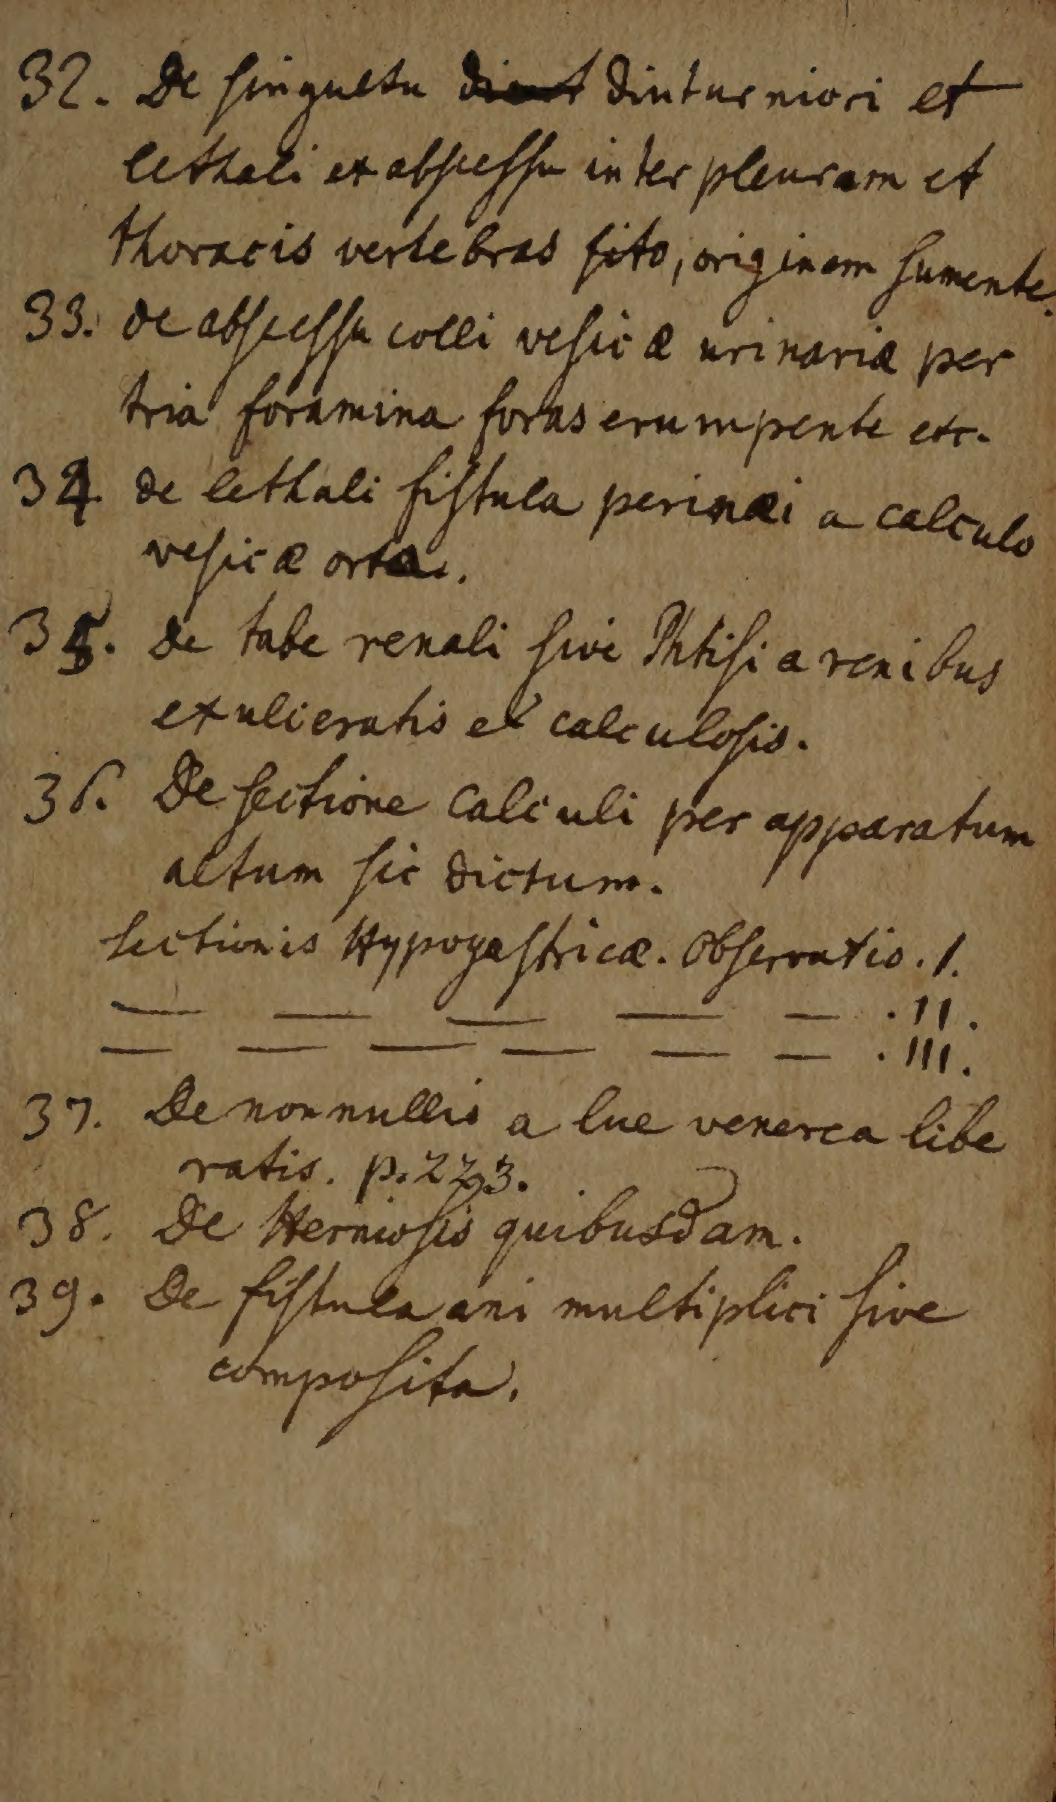 32. De singultu diuturniori et
lethali ex abscessu inter pleuram et
thoracis vertebras sito, originem sumente.
33. de abscessu colli vesicæ urinariæ per
tria foramina foras erumpente etc.
34. de lethali fistula perinæi a calculo
vesicæ orta.
35. de tabe renali sive Phtisi a renibus
exulceratis et calculosis.
36. De sectione calculi per apparatum
altum sic dictum.
sectionis Hypogastricæ. Observatio. I.
— — — — — . II.
— — — — — — . III.
37. De nonnullis a lue venerea libe
ratis. p. 223.
38. De Herniosis quibusdam.
39. De fistula ani multiplici sive
composita.